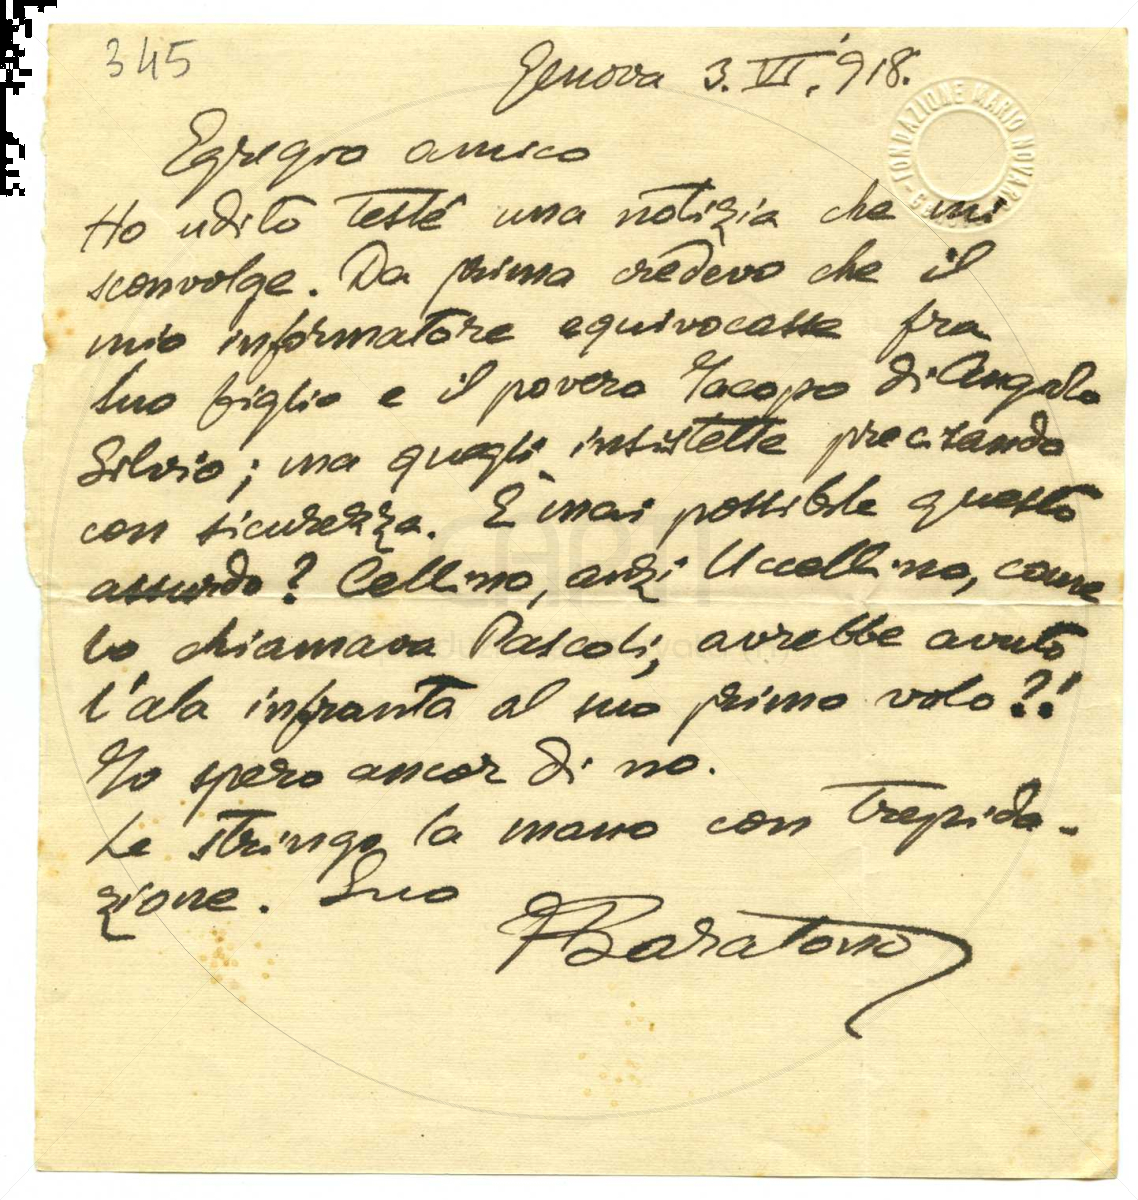 345
Genova 3.VI.'918.
FONDAZIONE MARIO NOVARO
Egregio amico
Ho udito testé una notizia che mi
sconvolge. Da prima credevo che il
mio informatore equivocasse fra
Suo figlio e il povero Jacopo di Angiolo
Silvio; ma quegli insistette precisando
con sicurezza. È mai possibile questo
assurdo? Cellino, anzi Uccellino, come
lo chiamava Pascoli, avrebbe avuto
l'ala infranta al suo primo volo?!
Io spero ancor di no.
Le stringo la mano con trepida-
zione. Suo
Baratono